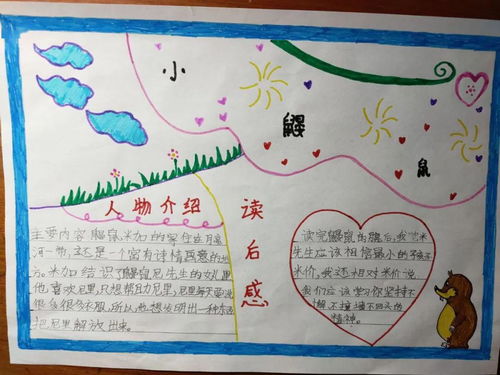 小
鼹
鼠
人物介绍
主要内容 鼹鼠米加的家住在月亮
河一带,这是一个富有诗情画意的地
方。米加结识了鼹鼠尼先生的女儿尼里
他喜欢尼里,只想帮助尼里,尼里每天要洗
很多很多衣服,所以,他想发明出一种东西
把尼里解放出来。
读
后
感
读完鼹鼠的月亮河后,我觉米
先生应该相信最小的孩子
米价,我还相对米价说
我们应该学习你坚持不
懈,不撞墙不回头的
精神。